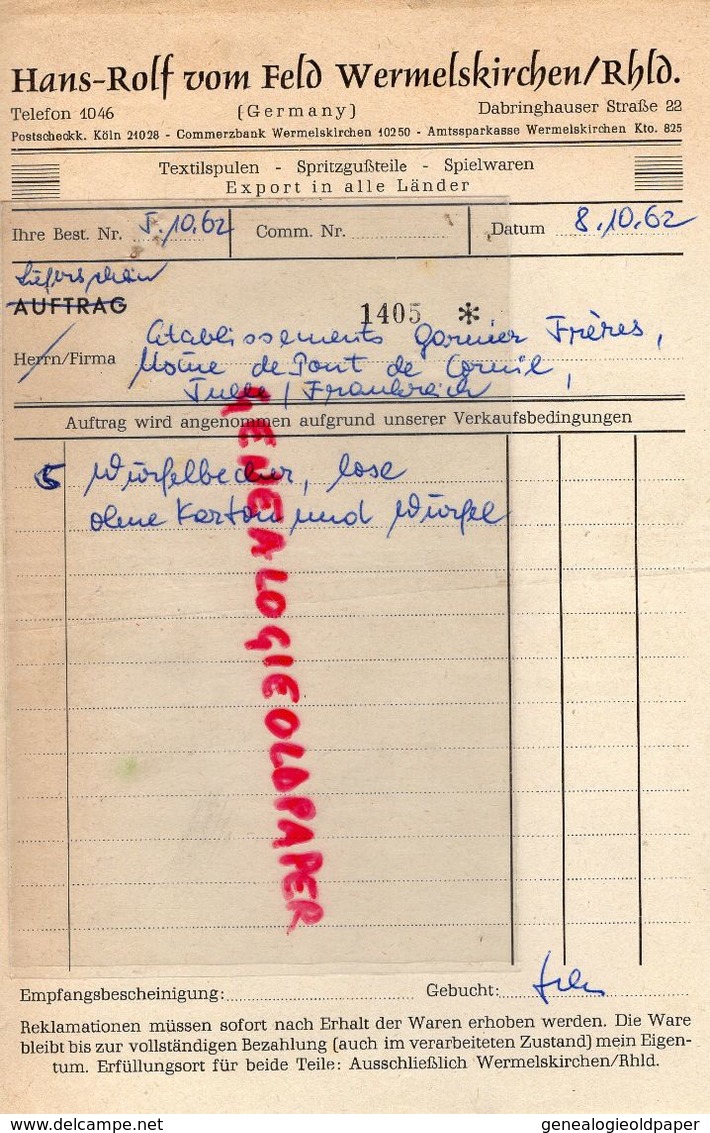 Hans-Rolf vom Feld Wermelskirchen/Rhld.
Telefon 1046 (Germany) Dabringhauser Straße 22
Postscheckk. Köln 21028 - Commerzbank Wermelskirchen 10250 - Amtssparkasse Wermelskirchen Kto. 825
Textilspulen - Spritzgußteile - Spielwaren
Export in alle Länder
Ihre Best. Nr. 5.10.62 Comm. Nr. Datum 8.10.62
Lieferschein
AUFTRAG 1405 *
Etablissements Garnier Frères,
Herrn/Firma de Pont de Cornil,
Tulle / Frankreich
Auftrag wird angenommen aufgrund unserer Verkaufsbedingungen
5 Würfelbecher, lose
ohne Karton und Würfel
GENEALOGIEOLDPAPER
Empfangsbescheinigung: Gebucht:
Reklamationen müssen sofort nach Erhalt der Waren erhoben werden. Die Ware
bleibt bis zur vollständigen Bezahlung (auch im verarbeiteten Zustand) mein Eigen-
tum. Erfüllungsort für beide Teile: Ausschließlich Wermelskirchen/Rhld.
delcampe.net genealogieoldpaper